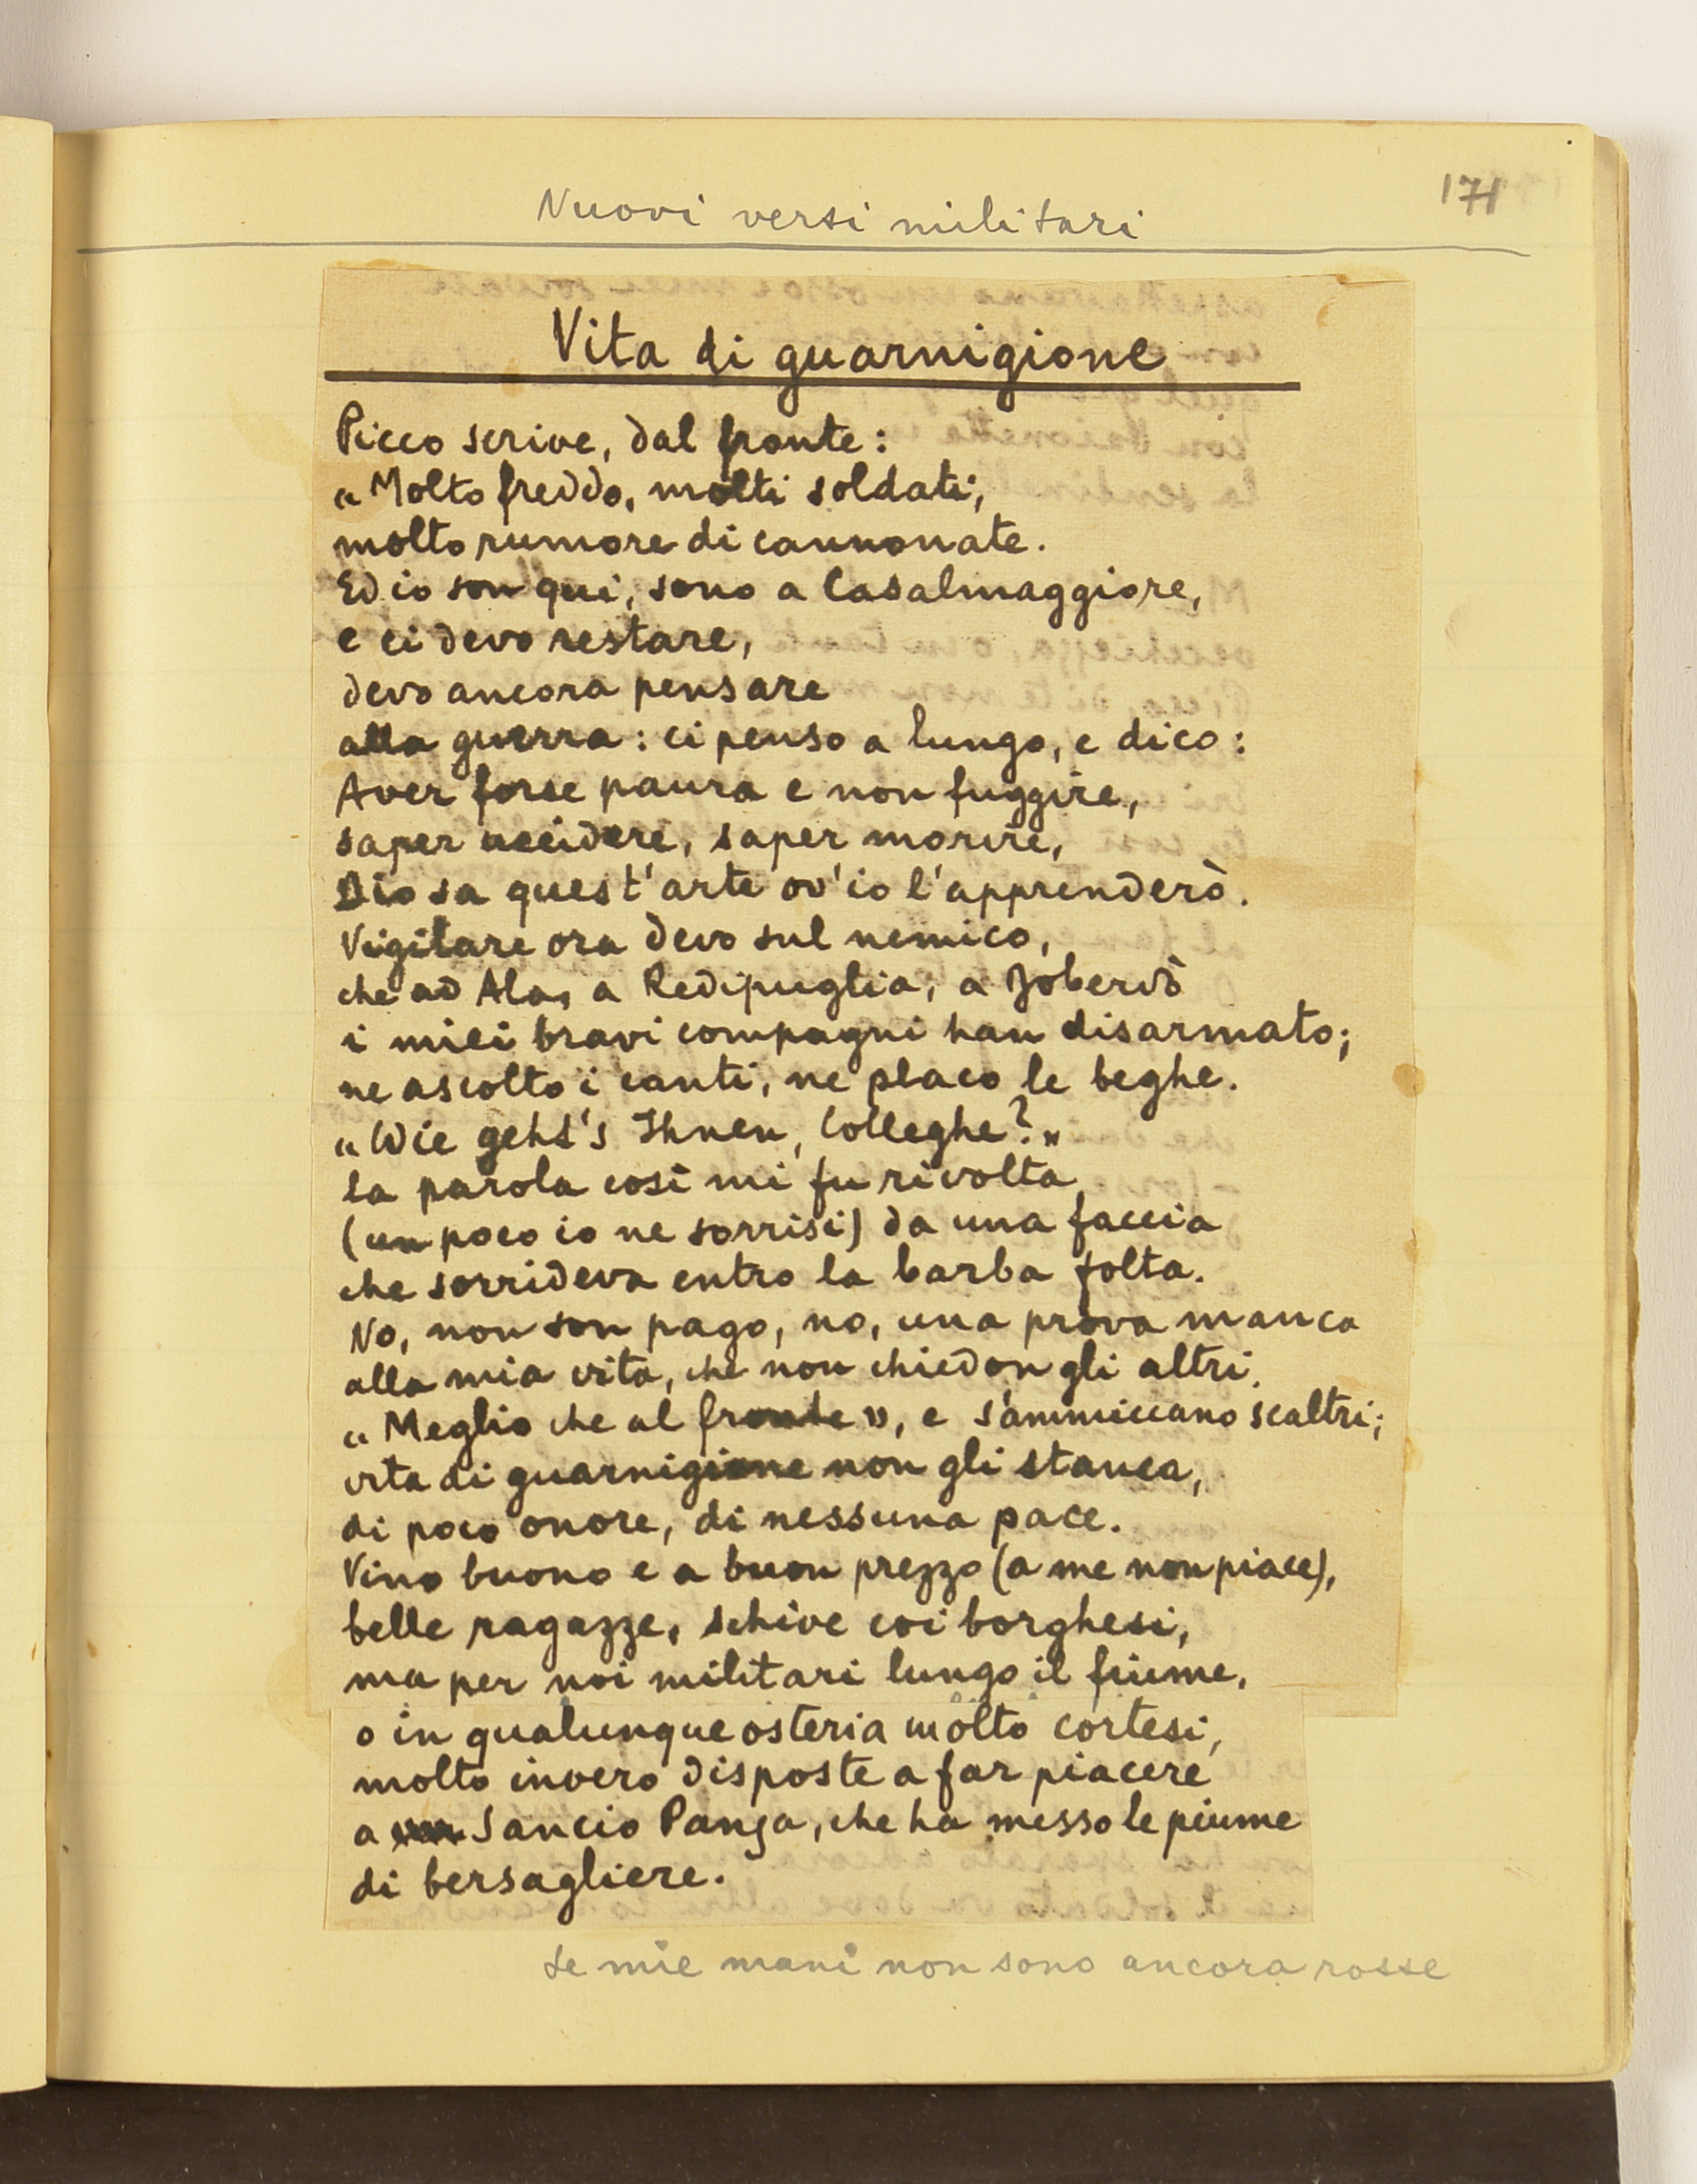 Nuovi versi militari
171
Vita di guarnigione
Picco scrive, dal fronte:
« Molto freddo, molti soldati,
molto rumore di cannonate.
Ed io son qui, sono a Casalmaggiore,
e ci devo restare,
devo ancora pensare
alla guerra: ci penso a lungo, e dico:
Aver forse paura e non fuggire,
saper uccidere, saper morire,
Dio sa quest'arte ov'io l'apprenderò.
Vigilare ora devo sul nemico,
che ad Ala, a Redipuglia, a Joberdò
i miei bravi compagni han disarmato;
ne ascolto i canti, ne placo le beghe.
« Wie geht's Ihnen, Colleghe? »
la parola così mi fu rivolta
(un poco io ne sorrisi) da una faccia
che sorrideva entro la barba folta.
No, non son pago, no, una prova manca
alla mia vita, che non chiedon gli altri.
« Meglio che al fronte », e s'ammiccano scaltri;
vita di guarnigione non gli stanca,
di poco onore, di nessuna pace.
Vino buono e a buon prezzo (a me non piace),
belle ragazze, schive coi borghesi,
ma per noi militari lungo il fiume,
o in qualunque osteria molto cortesi,
molto invero disposte a far piacere
a Sancio Panza, che ha messo le piume
di bersagliere.
Le mie mani non sono ancora rosse